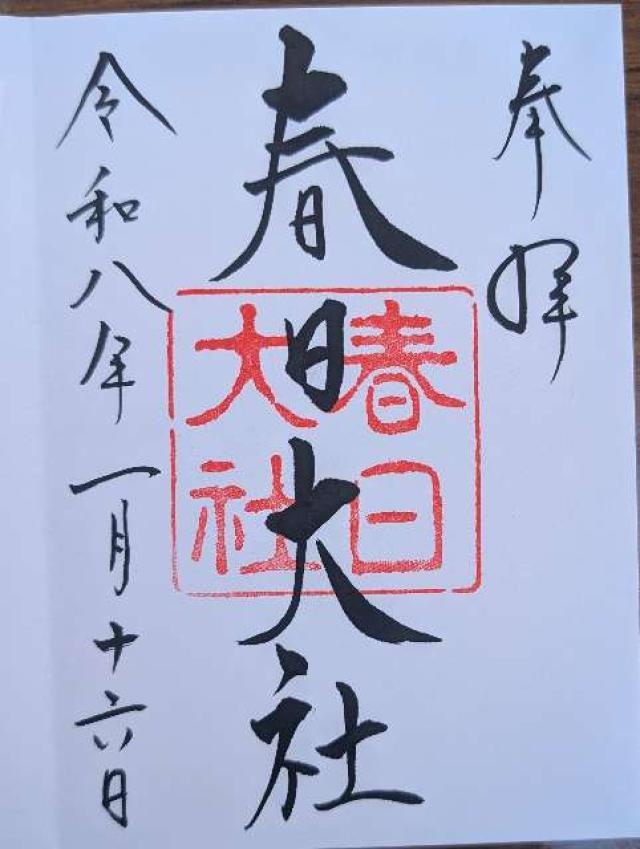 奉拝
春日大社
春日
大社
令和八年一月十六日